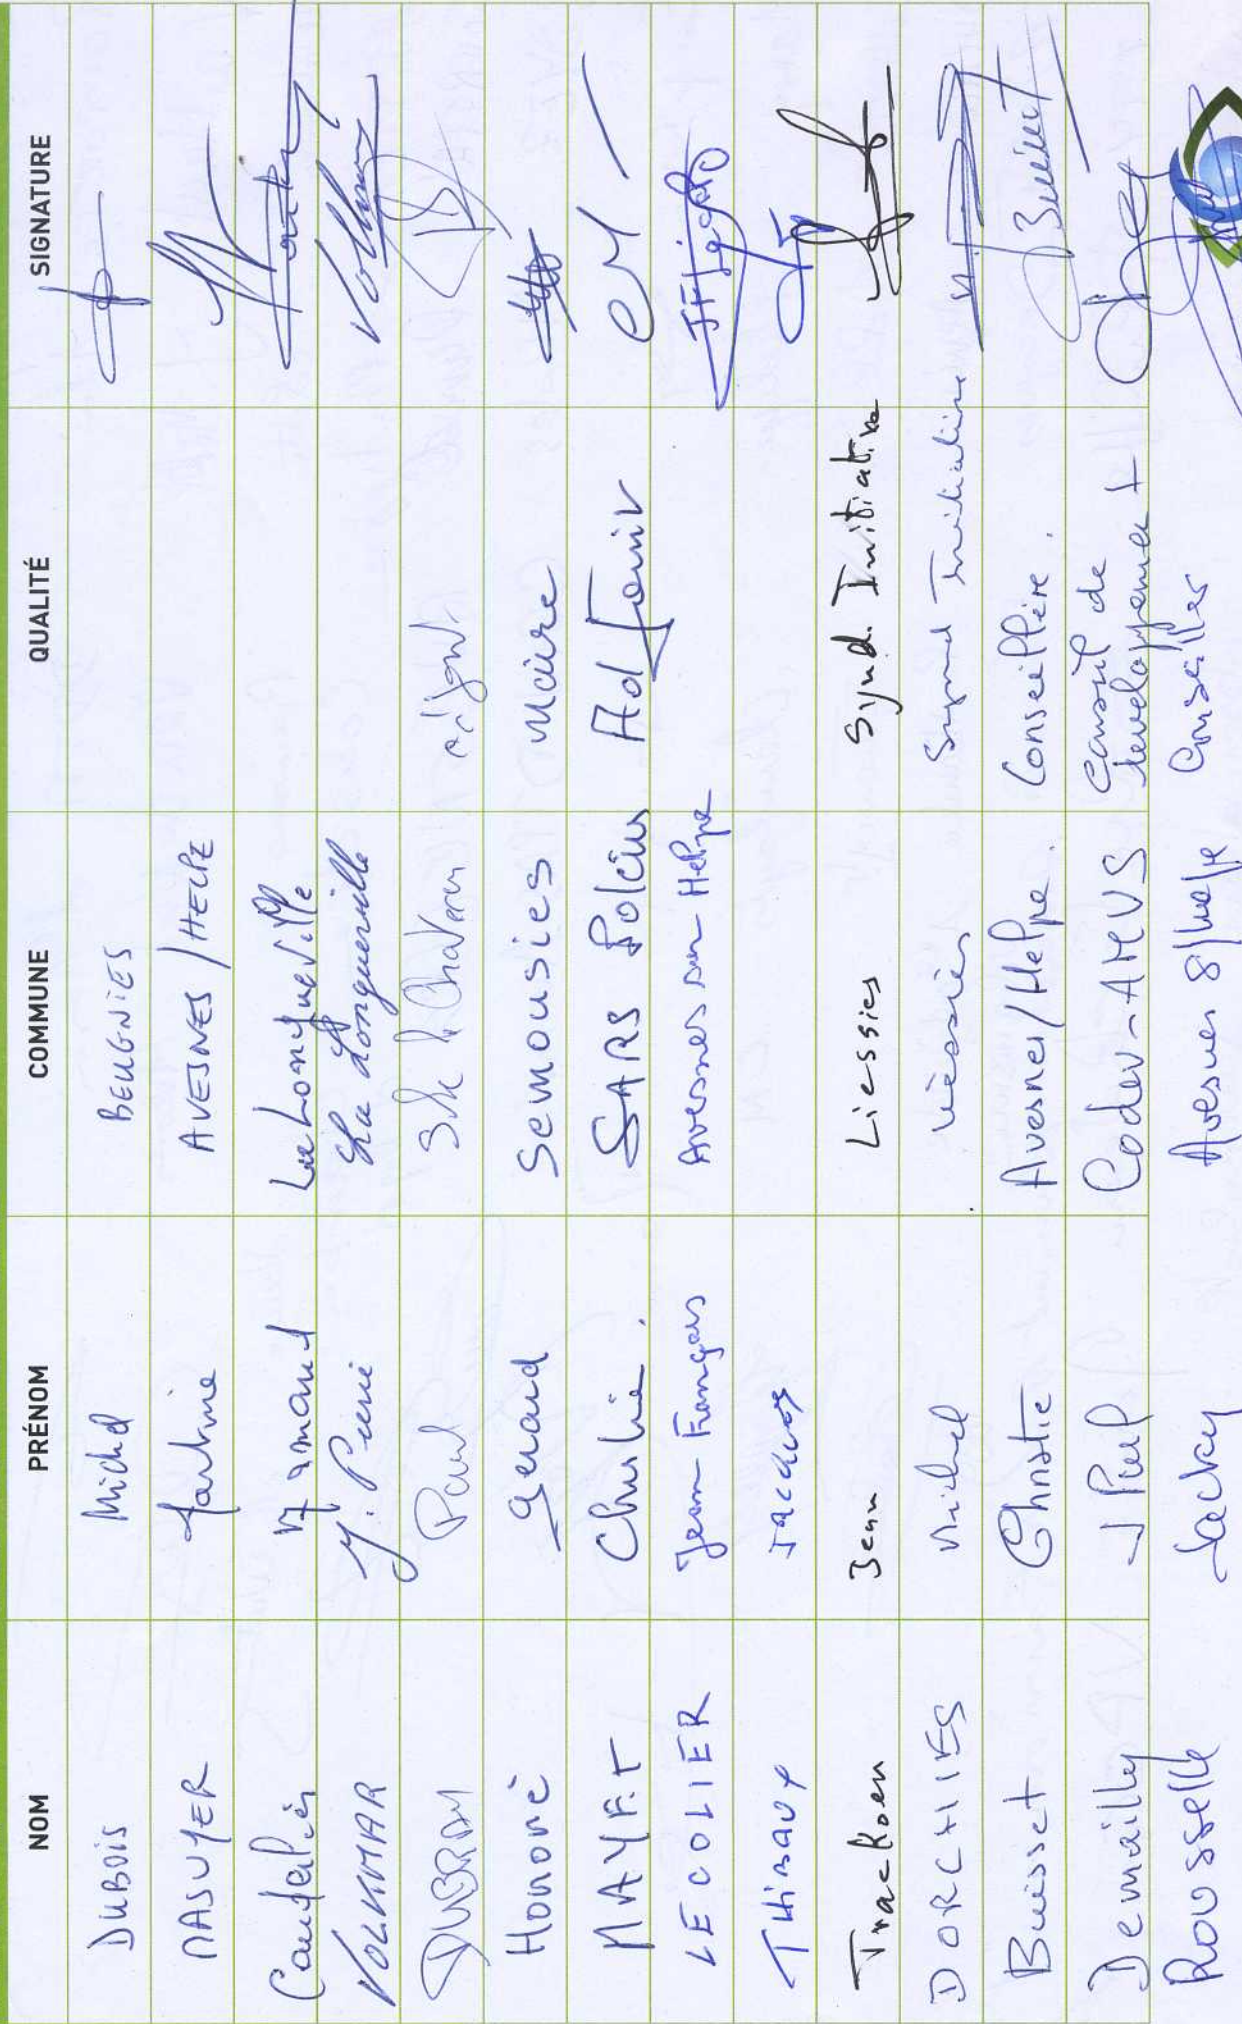 NOM PRÉNOM COMMUNE QUALITÉ SIGNATURE
DUBOIS Michel BEUGNIES
MASUYER Martine AVESNES / HELPE
Armand La Longueville
VOLKMAR J. Pierre La Longueville Volkmar
Paul
Honoré Gérard Semousies Maire
MAYET SARS Poteries
LECOLIER Jean-François Avesnes sur Helpe
THIBAUX Jacques
Trackoen Jean Liessies Synd. Initiative
DORCHIES Michel Liessies Synd Initiative
Buisset Christie Avesnes/Helpe. Conseillère. Buisset
Demailly J Paul Codev-AMVS Conseil de
developpement
Rousselle Jacky Avesnes s/helpe Conseiller